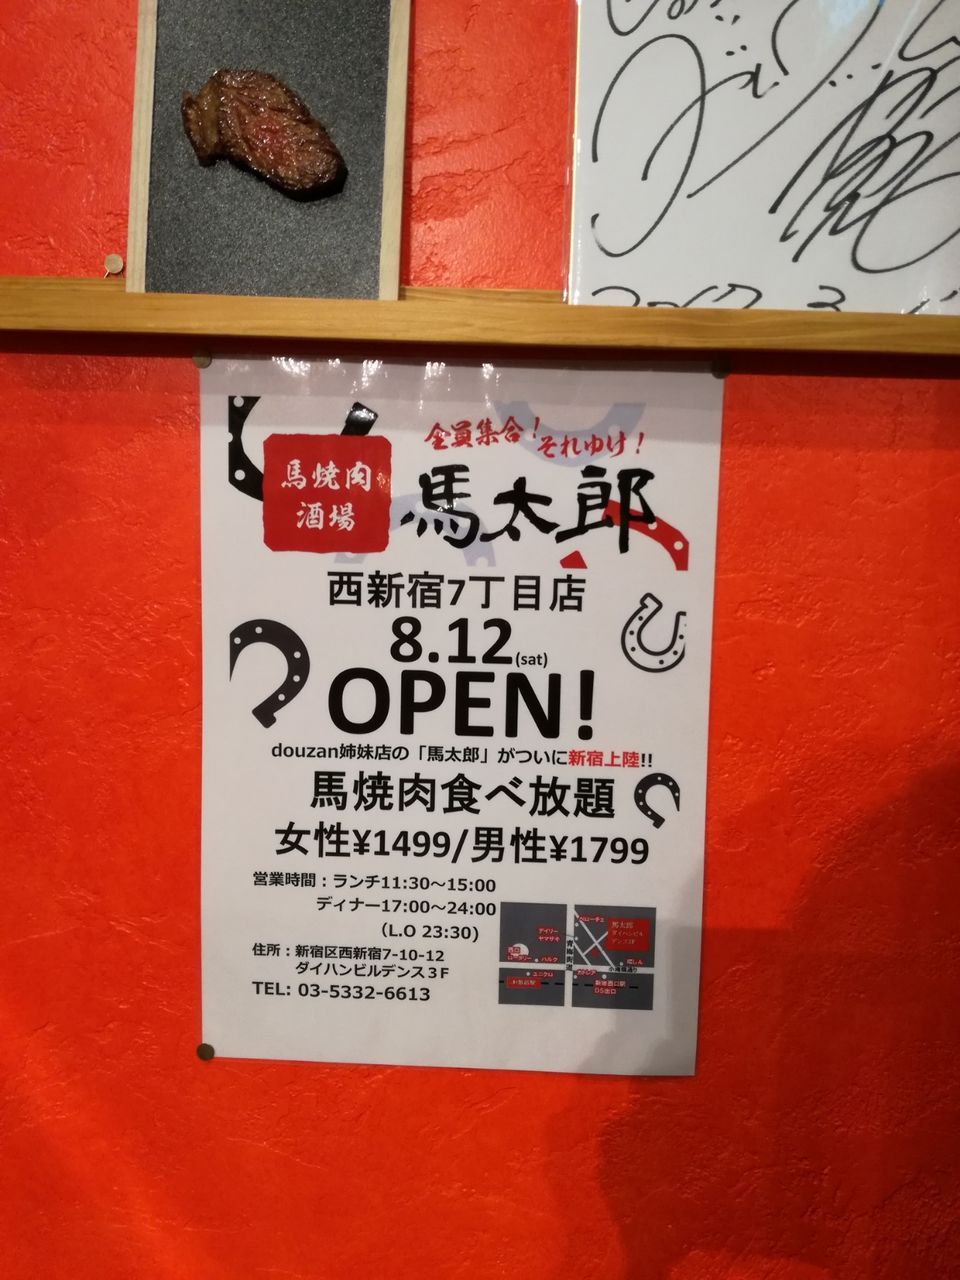 全員集合!それゆけ!
馬焼肉
酒場
馬太郎
西新宿7丁目店
8.12(sat)
OPEN!
douzan姉妹店の「馬太郎」がついに新宿上陸!!
馬焼肉食べ放題
女性¥1499/男性¥1799
営業時間:ランチ11:30～15:00
ディナー17:00～24:00
(L.O 23:30)
住所:新宿区西新宿7-10-12
ダイハンビルデンス3F
TEL: 03-5332-6613
デイリー
ヤマザキ
馬太郎
ダイハンビル
デンス3F
ハルク
ユニクロ
小滝橋通り
新宿西口駅
D5出口